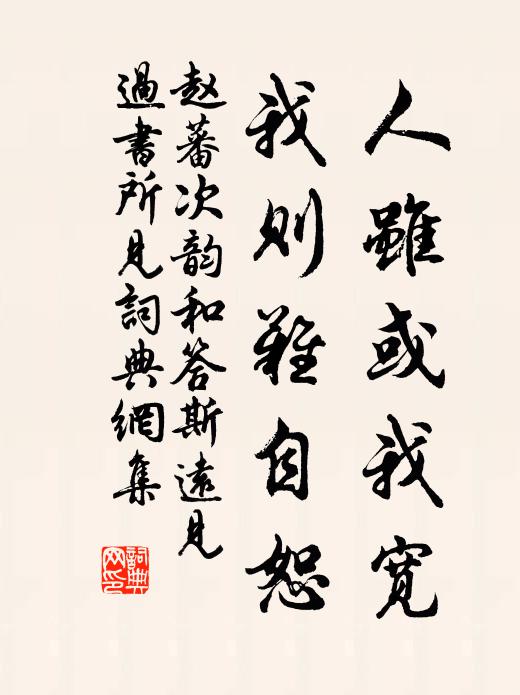 人雖或我寬
我則難自恕
赵蕃次韵和答斯遠見
過書所見詞典網集
詞典網印